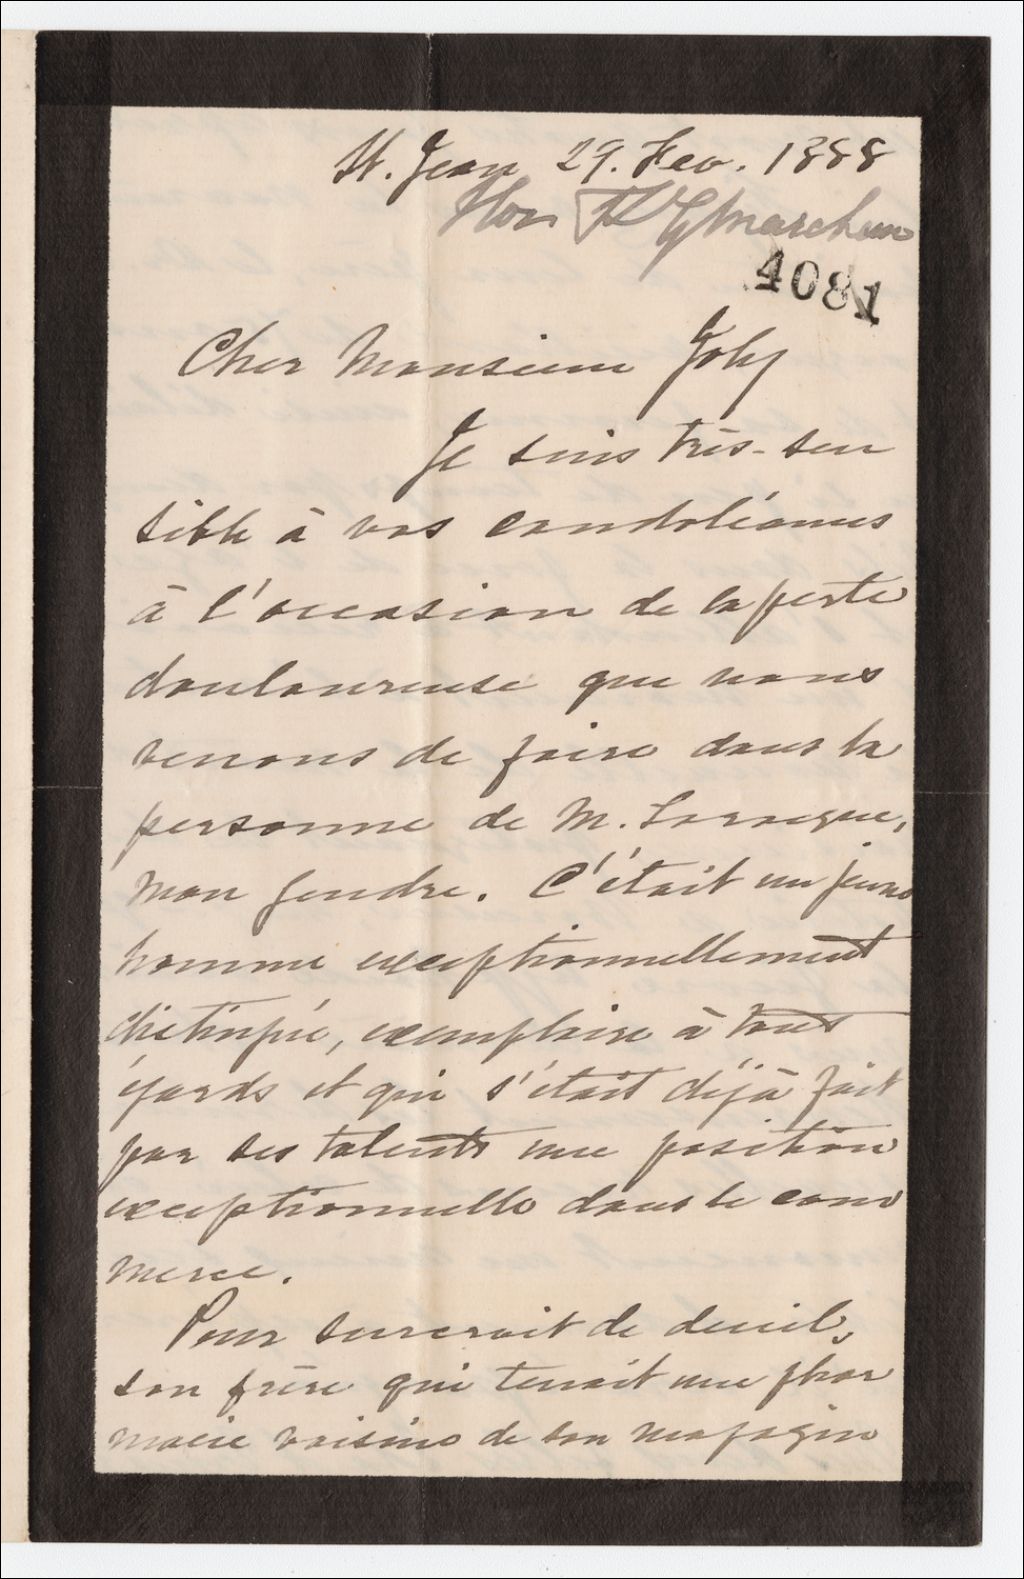 St. Jean 29. Fev. 1888
Hon F G Marchand
4081
Cher Monsieur Joly
Je suis très-sen
sible à vos condoléances
à l'occasion de la perte
douloureuse que nous
venons de faire dans la
personne de M. Larocque,
mon gendre. C'était un jeune
homme exceptionnellement
distingué, exemplaire à tous
égards et qui s'était déjà fait
par ses talents une position
exceptionnelle dans le com
merce.
Pour surcroit de deuil,
son frère qui tenait une phar
macie voisine de son magasin